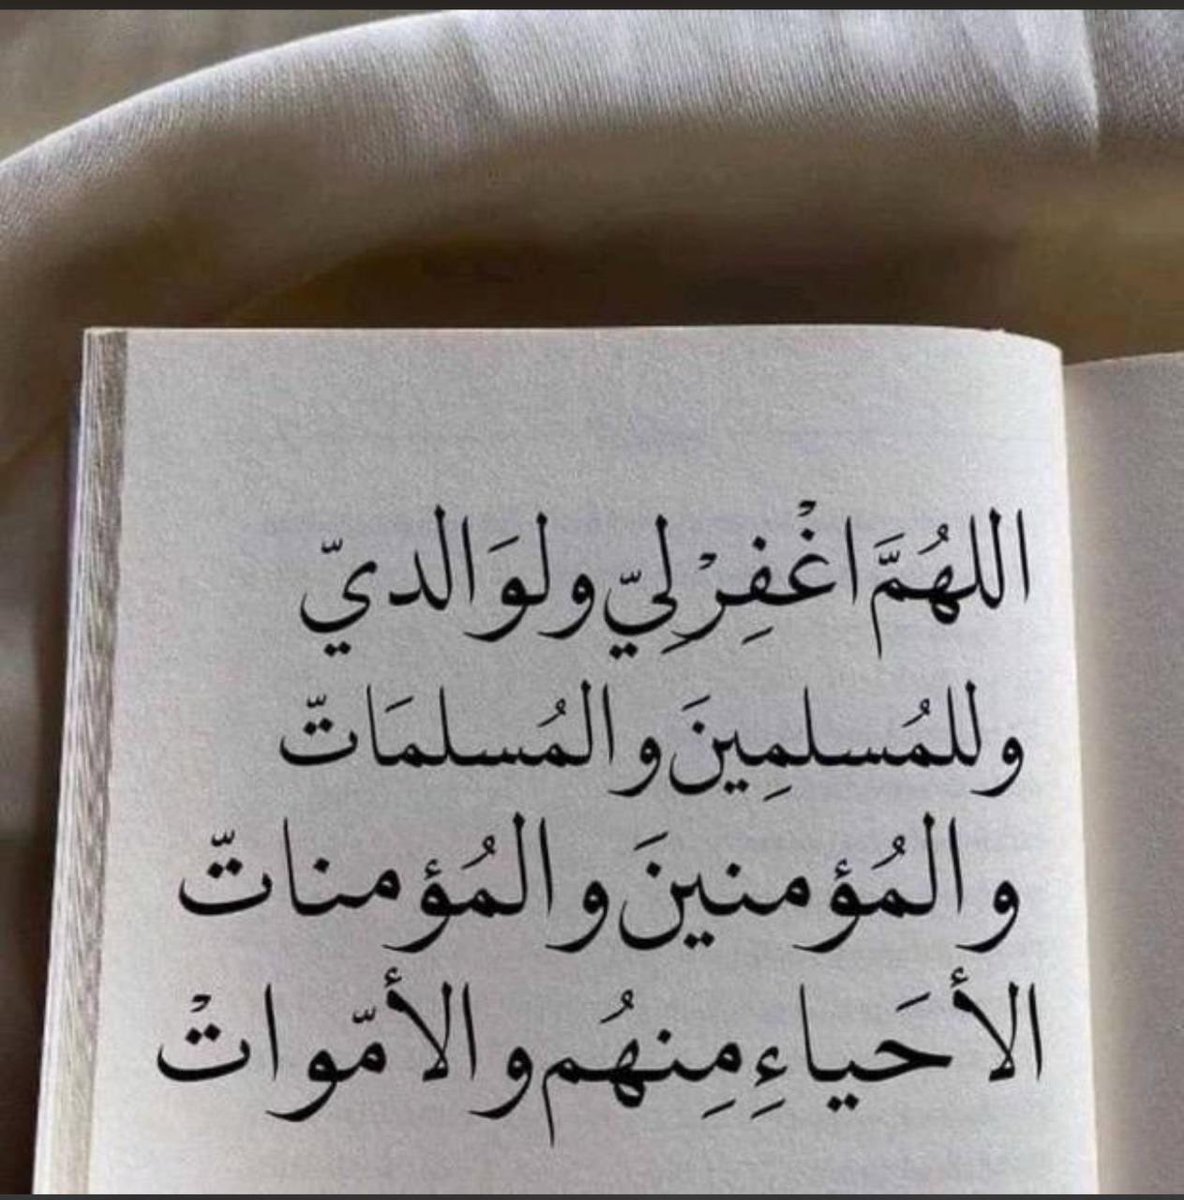 اللهُمَّ اغْفِرْ لِيّ ولوَالديّ
وللمُسلمِينَ والمُسلمَاتّ
والمُؤمنينَ والمُؤمناتّ
الأحَياءِ مِنهُم والأمّواتْ